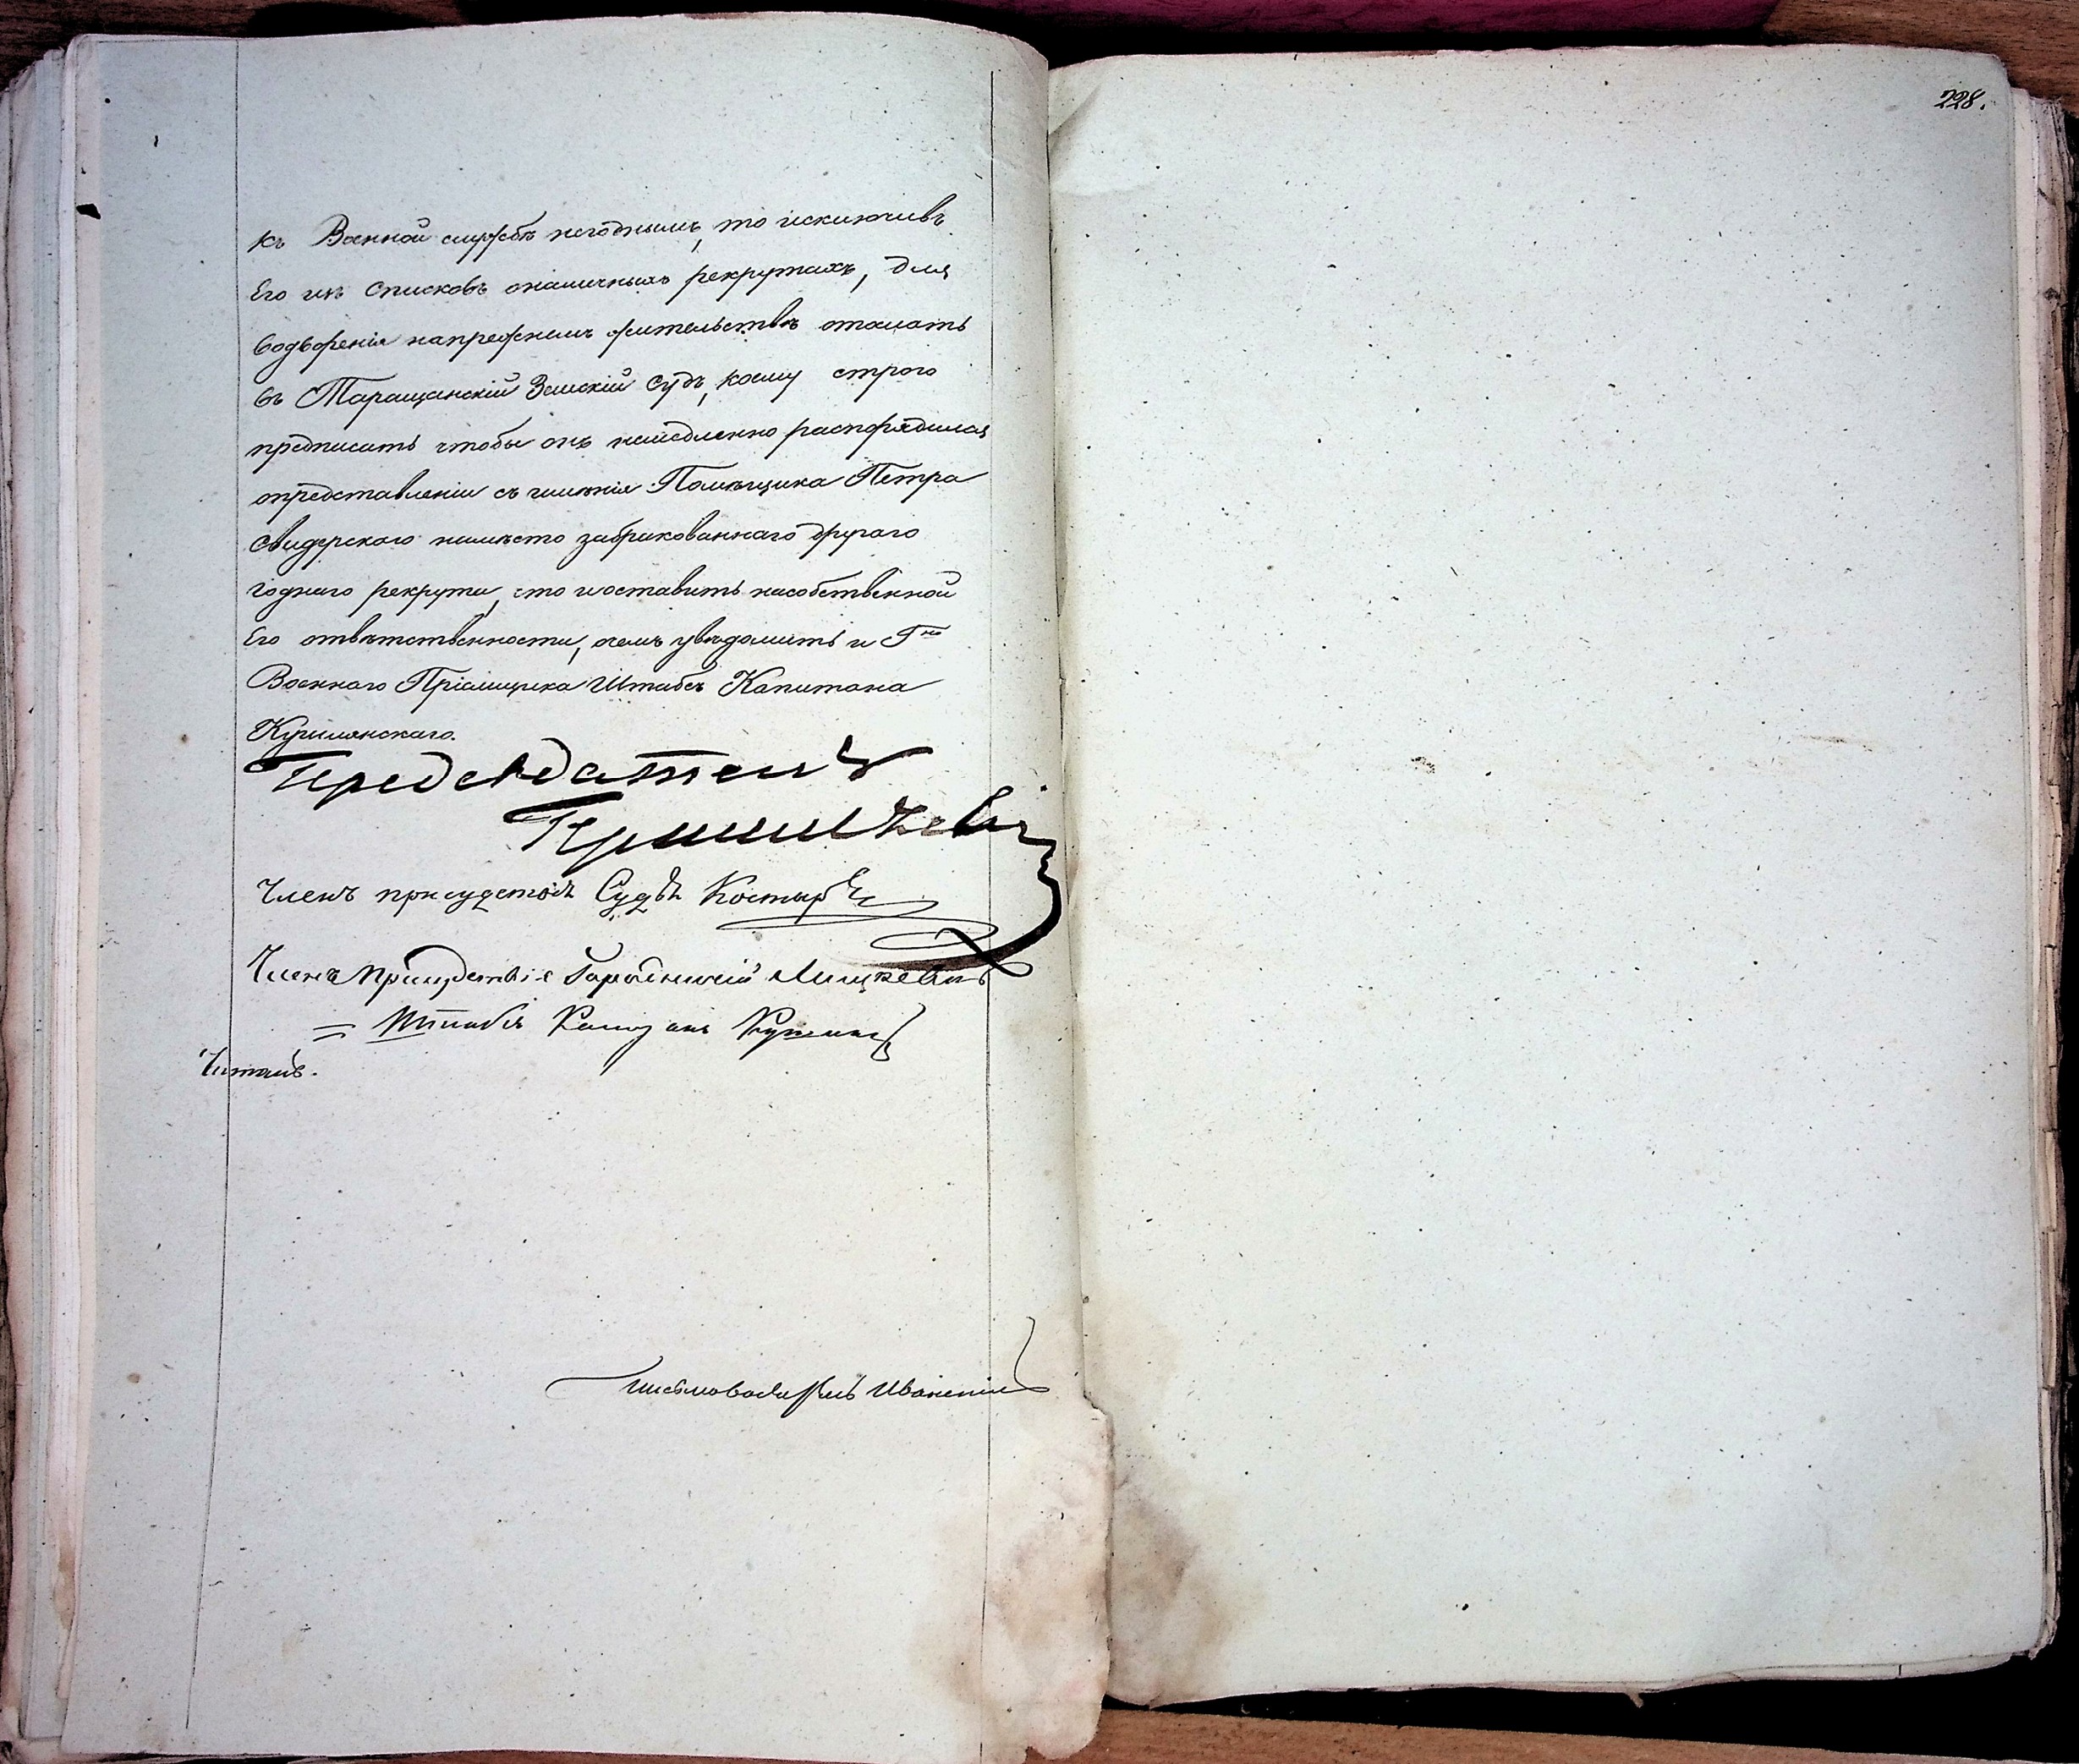 228.
къ Военной службѣ негоднымъ, то исключивъ
Его изъ Списковъ оналичныхъ рекрутахъ, для
водворенія напрежнемъ жительствѣ отослать
въ Таращанскій Земскій Судъ, коему строго
предписать чтобы онъ немедленно распорядился
опредставленіи съ имѣнія Помѣщика Петра
Свидерского намѣсто забракованнаго другаго
годнаго рекрута, что и оставить насобственной
Его отвѣтственности, очемъ увѣдомить и Гна
Военнаго Пріемщика Штабсъ Капитана
Предсѣдатель
Членъ присудствія Судья
Членъ Присудствія Городничій
= Штабсъ Капитанъ
Читалъ.
Письмоводитель